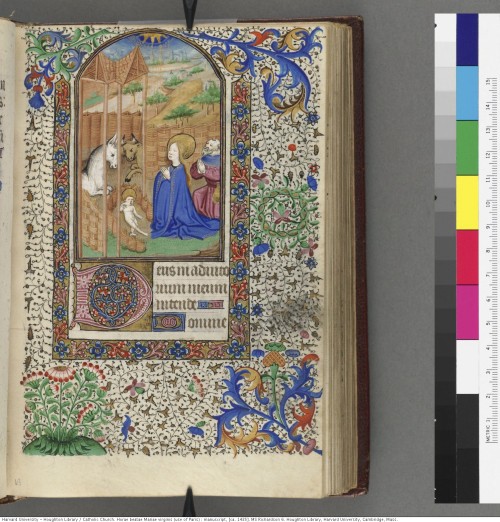 Deus in adiuto
rium meum
intende
Domine
METRIC 1 2 3 4 5 6 7 8 9 10 11 12 13 14 15
Harvard University - Houghton Library / Catholic Church. Horae beatae Mariae virginis (use of Paris) : manuscript, [ca. MS Richardson 6. Houghton Library, Harvard University, Cambridge, Mass.